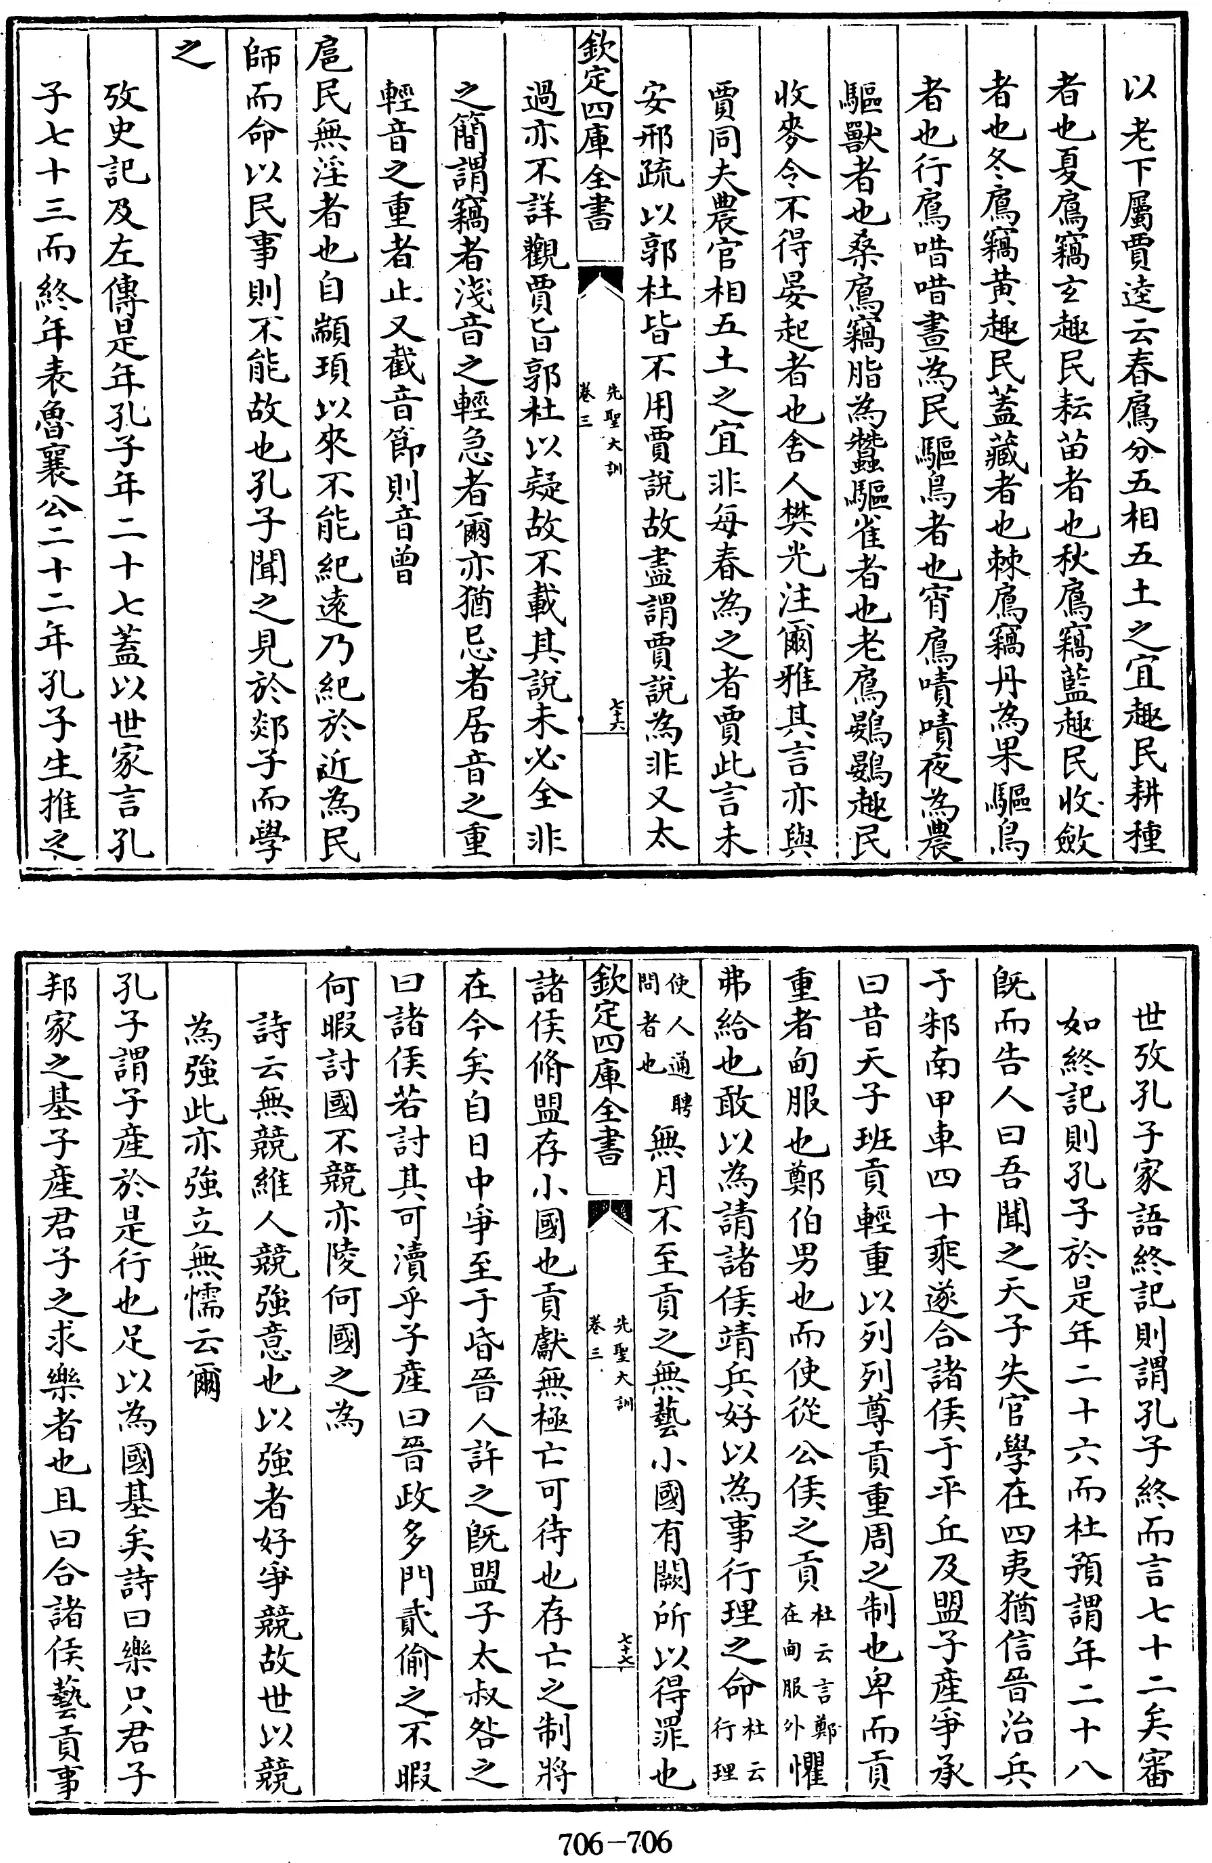 以老下屬賈逵云春鳸分五相五土之宜趣民耕種
者也夏鳸竊玄趣民耘苗者也秋鳸竊藍趣民收斂
者也冬鳸竊黄趣民蓋藏者也棘鳸竊丹為果驅鳥
者也行鳸唶唶晝為民驅鳥者也宵鳸嘖嘖夜為農
驅獸者也桑鳸竊脂為蠶驅雀者也老鳸鷃鷃趣民
收麥令不得晏起者也舍人樊光注爾雅其言亦與
賈同夫農官相五土之宜非每春為之者賈此言未
安邢疏以郭杜皆不用賈說故盡謂賈說為非又太
欽定四庫全書
先聖大訓
卷三
七十六
過亦不詳觀賈旨郭杜以疑故不載其說未必全非
之簡謂竊者淺音之輕急者爾亦猶忌者居音之重
輕音之重者止又截音節則音曾
扈民無淫者也自顓頊以來不能紀遠乃紀於近為民
師而命以民事則不能故也孔子聞之見於郯子而學
之
攷史記及左傳是年孔子年二十七蓋以世家言孔
子七十三而終年表魯襄公二十二年孔子生推之
世攷孔子家語終記則謂孔子終而言七十二矣審
如終記則孔子於是年二十六而杜預謂年二十八
旣而告人曰吾聞之天子失官學在四夷猶信晉治兵
于邾南甲車四十乘遂合諸侯于平丘及盟子產爭承
曰昔天子班貢輕重以列列尊貢重周之制也卑而貢
重者甸服也鄭伯男也而使從公侯之貢杜云言鄭在甸服外懼
弗給也敢以為請諸侯靖兵好以為事行理之命杜云行理
使人通聘問者也無月不至貢之無藝小國有闕所以得罪也
欽定四庫全書
先聖大訓
卷三
七十七
諸侯脩盟存小國也貢獻無極亡可待也存亡之制將
在今矣自日中爭至于昏晉人許之旣盟子太叔咎之
曰諸侯若討其可瀆乎子產曰晉政多門貳偷之不暇
何暇討國不競亦陵何國之為
詩云無競維人競強意也以強者好爭競故世以競
為強此亦強立無懦云爾
孔子謂子產於是行也足以為國基矣詩曰樂只君子
邦家之基子產君子之求樂者也且曰合諸侯藝貢事
706-706